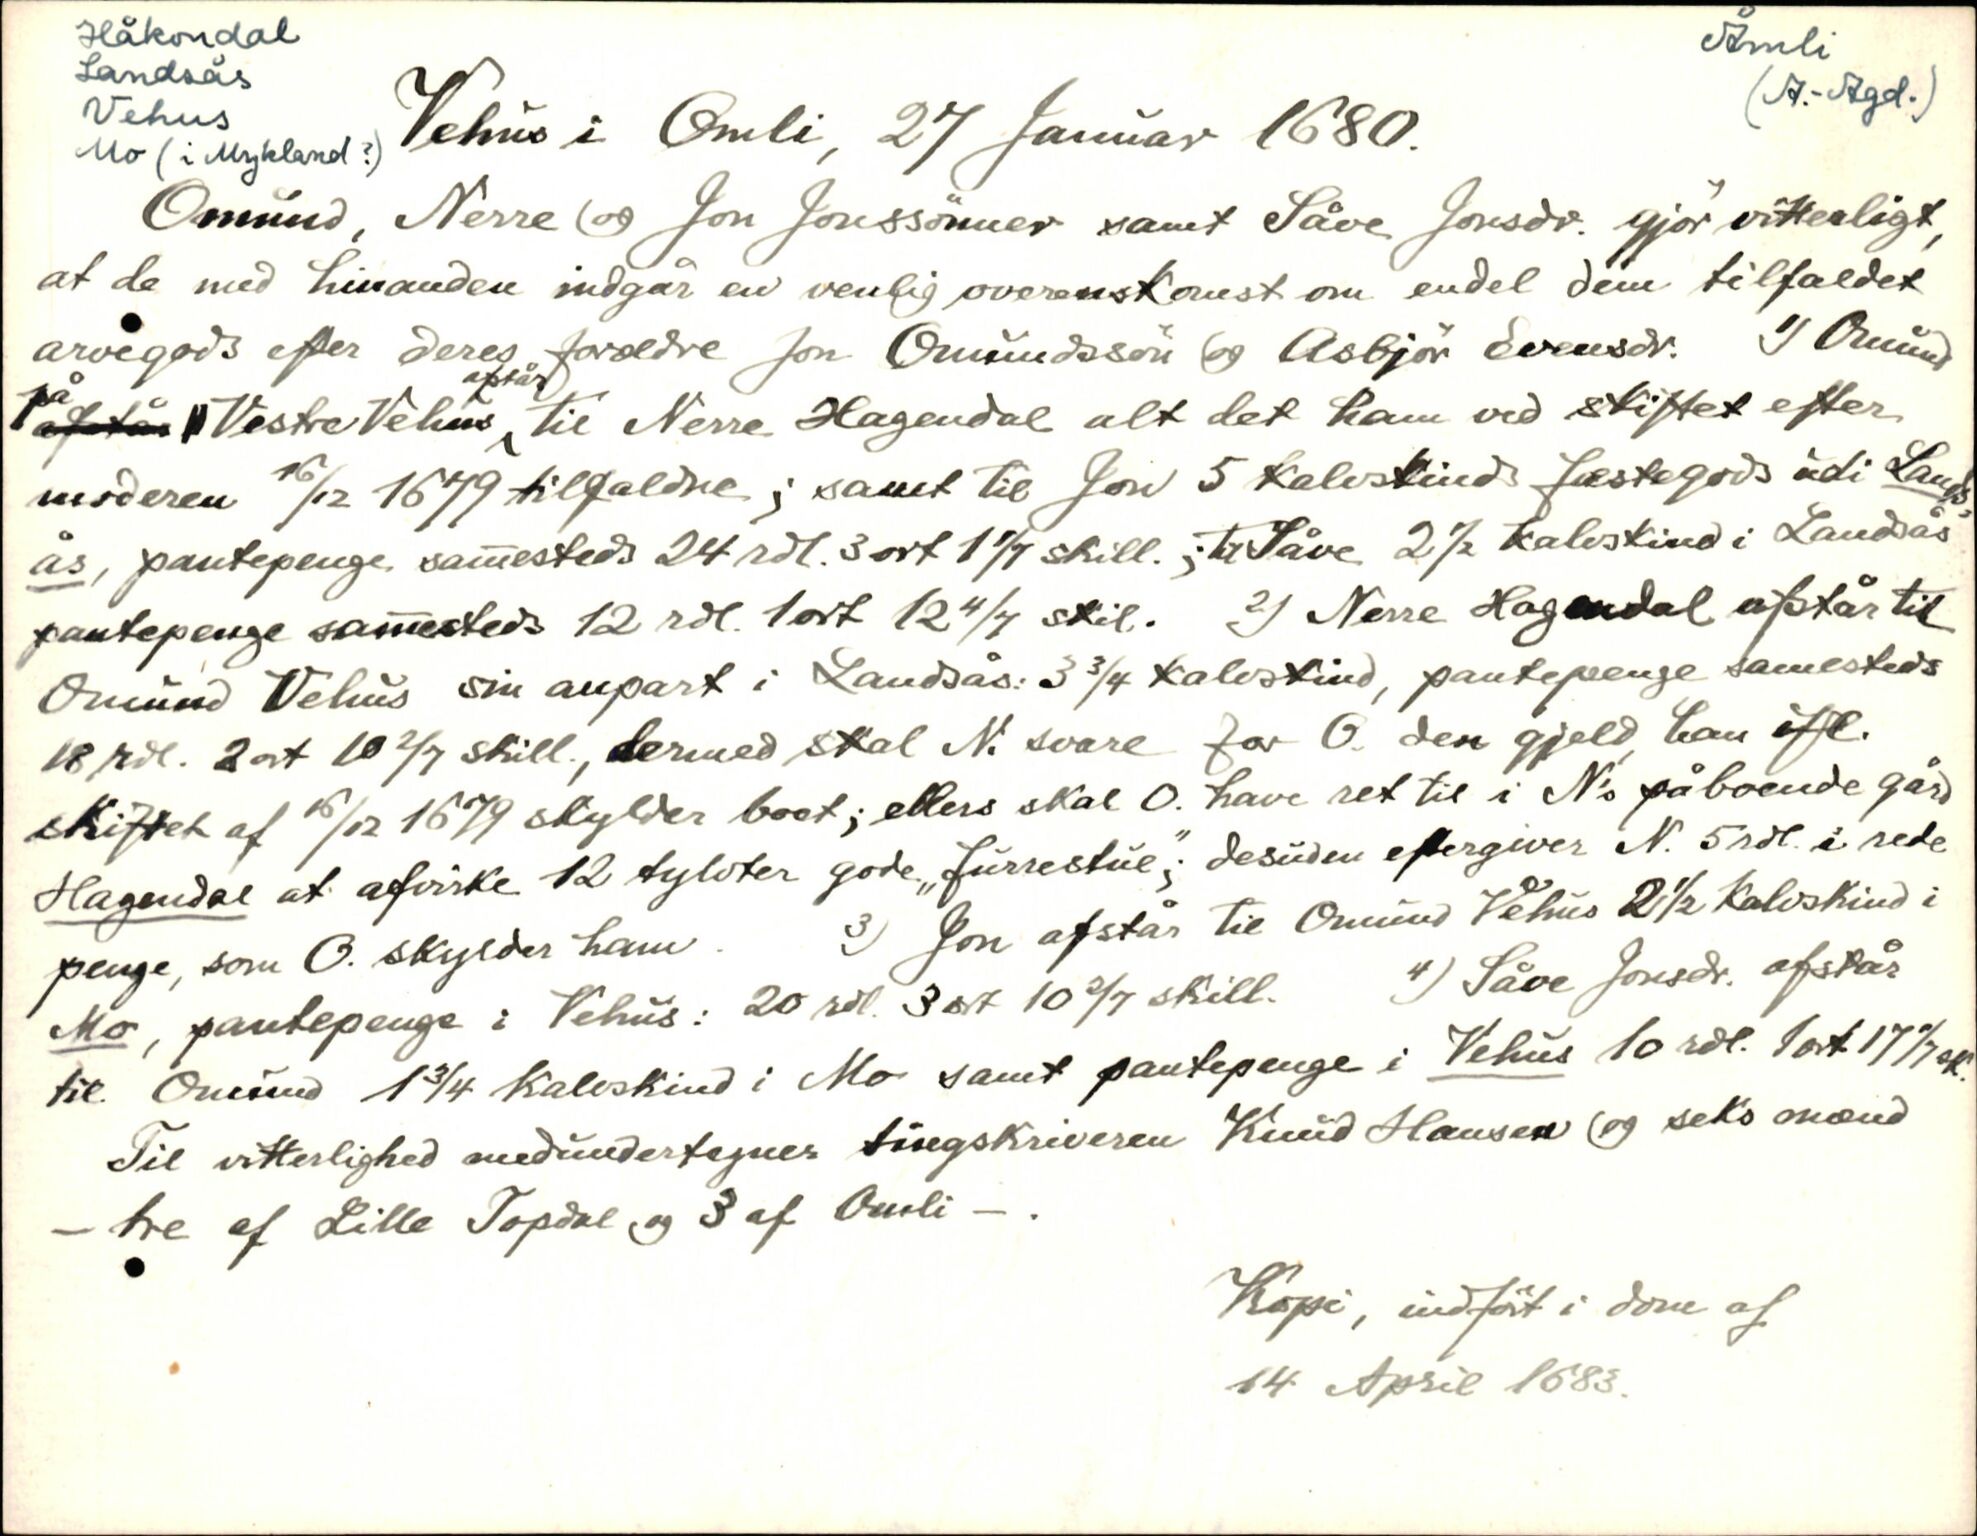 Håkondal
Landsås
Vehus
Mo (i Mykland?)
Åmli
(A.-Agd.)
Vehus i Omli, 27 Januar 1680.
Omund, Nerre og Jon Jonssönner samt Såve Jonsdr. gjör vitterligt,
at de med hinanden indgår en venlig overenskomst om endel dem tilfaldet
arvegods efter deres forældre Jon Omundssön og Asbjör Evensdr. 1) Omund
på Vestre Vehus afstår til Nerre Hagendal alt det ham ved skiftet efter
moderen 16/12 1679 tilfaldne; samt til Jon 5 kalvskinds fæstegods udi Lands-
ås, pantepenge sam̅esteds 24 rdl. 3 ort 1 1/7 skill.; til Såve 2 1/2 kalvskind i Landsås
pantepenge sam̅esteds 12 rdl. 1 ort 12 4/7 skil. 2) Nerre Hagendal afstår til
Omund Vehus sin anpart i Landsås: 3 3/4 kalvskind, pantepenge samesteds
18 rdl. 2 ort 10 2/7 skill., dermed skal N. svare for O. den gjeld, han ifl.
skiftet af 16/12 1679 skylder boet; ellers skal O. have ret til i N's påboende gård
Hagendal at afvirke 12 tylvter gode „furrestue“; desuden eftergiver N. 5 rdl. i rede
penge, som O. skylder ham. 3) Jon afstår til Omund Vehus 2 1/2 kalvskind i
Mo, pantepenge i Vehus: 20 rdl. 3 ort 10 2/7 skill. 4) Såve Jonsdr. afstår
til Omund 1 3/4 kalvskind i Mo samt pantepenge i Vehus 10 rdl. 1 ort 17 1/7 sk.
Til vitterlighed medundertegner tingskriveren Knud Hansen og seks mænd
— tre af Lille Topdal og 3 af Omli —.
Kopi, indfört i dom af
14 April 1683.